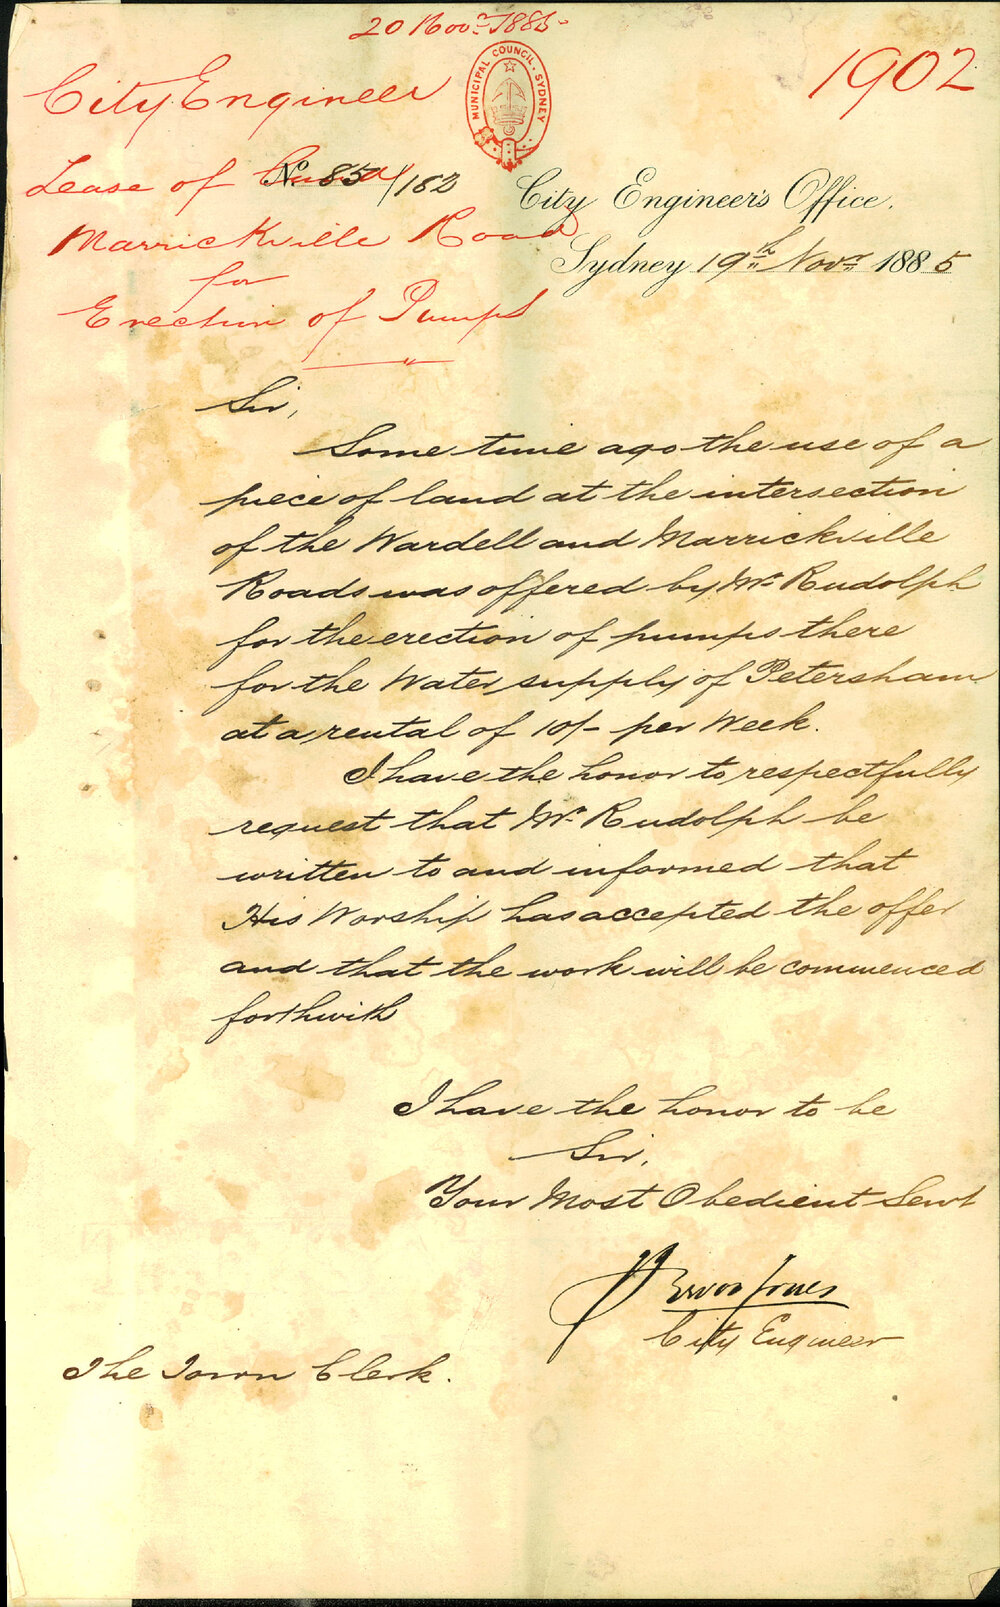 20 Novr. 1885
City Engineer
1902
MUNICIPAL COUNCIL. SYDNEY
Lease of
No. 850/182
Marrickville Road
for
Erection of Pumps
City Engineer's Office,
Sydney 19th Novr 1885
Sir,
Some time ago the use of a
piece of land at the intersection
of the Wardell and Marrickville
Roads was offered by Mr. Rudolph
for the erection of pumps there
for the Water supply of Petersham
at a rental of 10/- per Week.
I have the honor to respectfully
request that Mr. Rudolph be
written to and informed that
His Worship has accepted the offer
and that the work will be commenced
forthwith
I have the honor to be
Sir,
Your Most Obedient Servt
Jones
City Engineer
The Town Clerk.